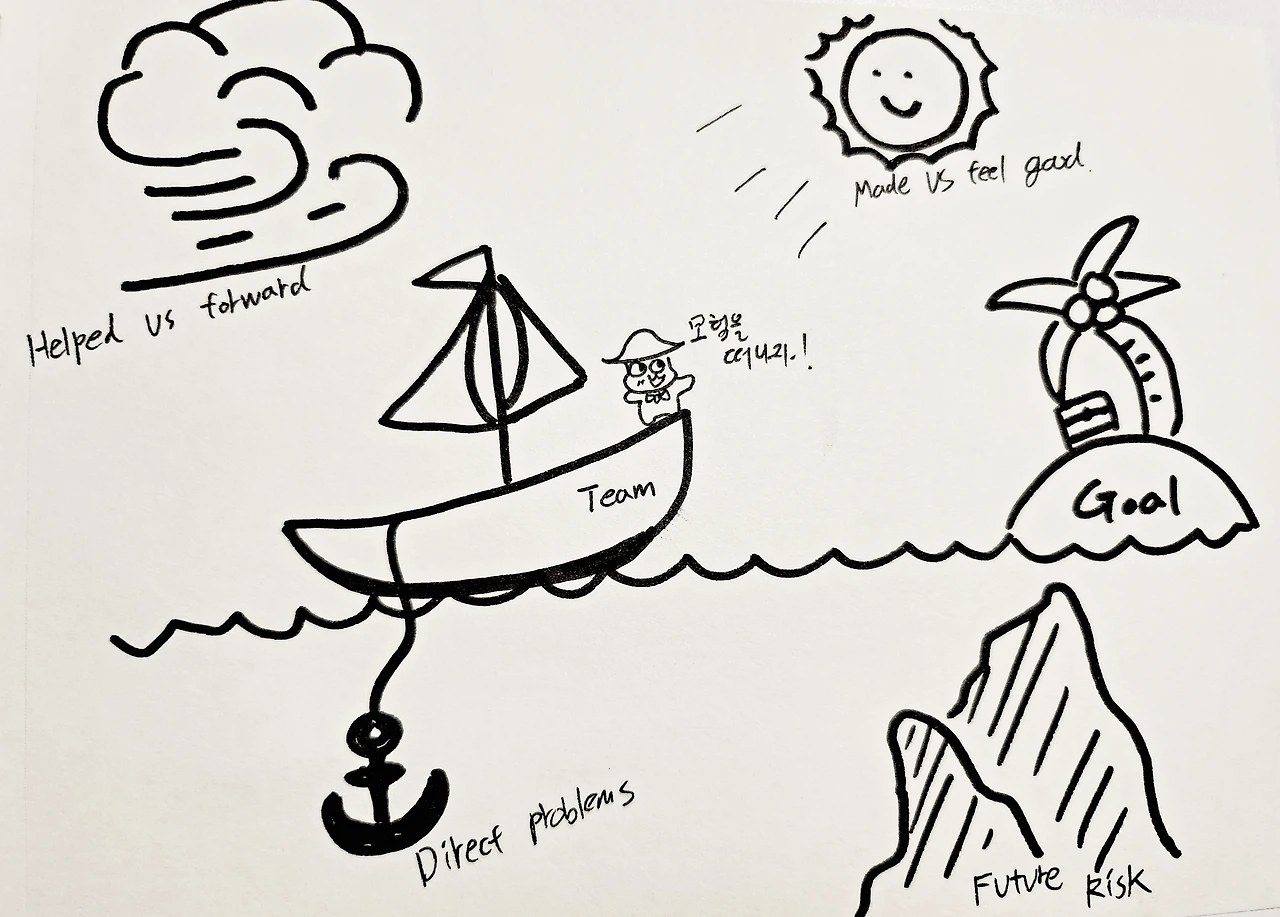 Made us feel good.
Helped us forward
모험을
떠나자.!
Team
Goal
Direct problems
Future Risk